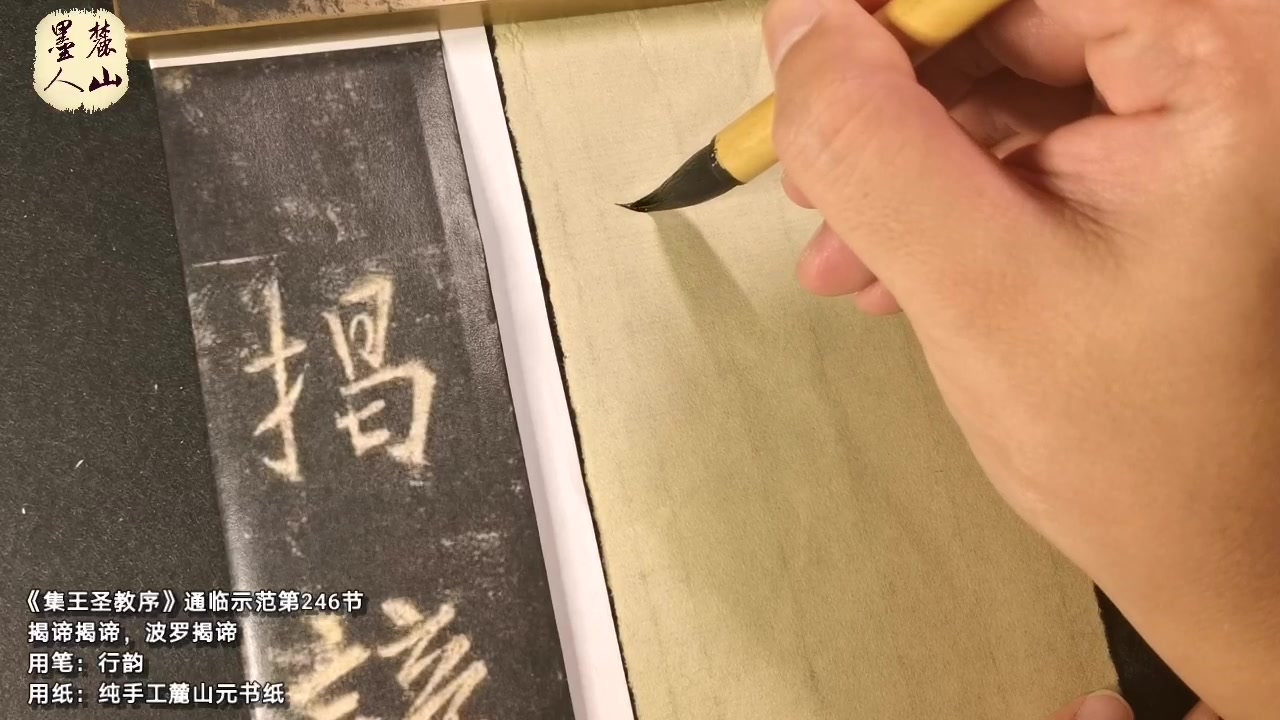 麓山
墨人
揭
諦
《集王圣教序》通临示范第246节
揭谛揭谛，波罗揭谛
用笔：行韵
用纸：纯手工麓山元书纸